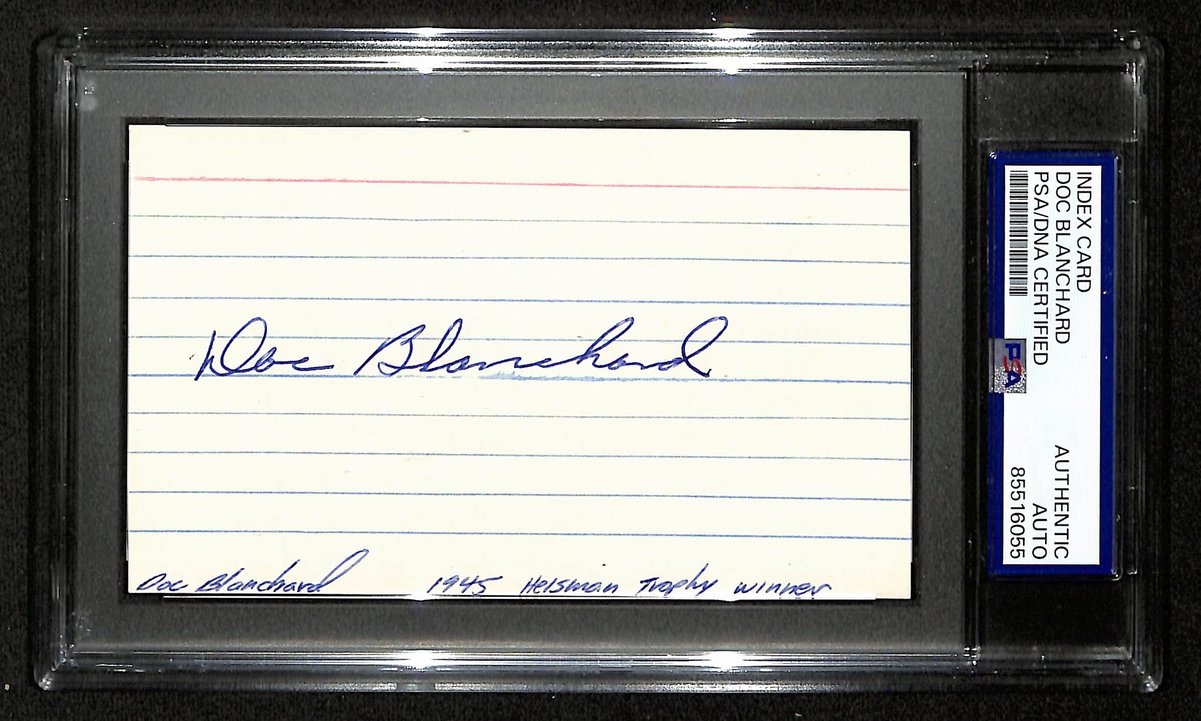 Doc Blanchard
Doc Blanchard 1945 Heisman Trophy Winner
INDEX CARD
DOC BLANCHARD
PSA/DNA CERTIFIED
PSA
AUTHENTIC
AUTO
85516055